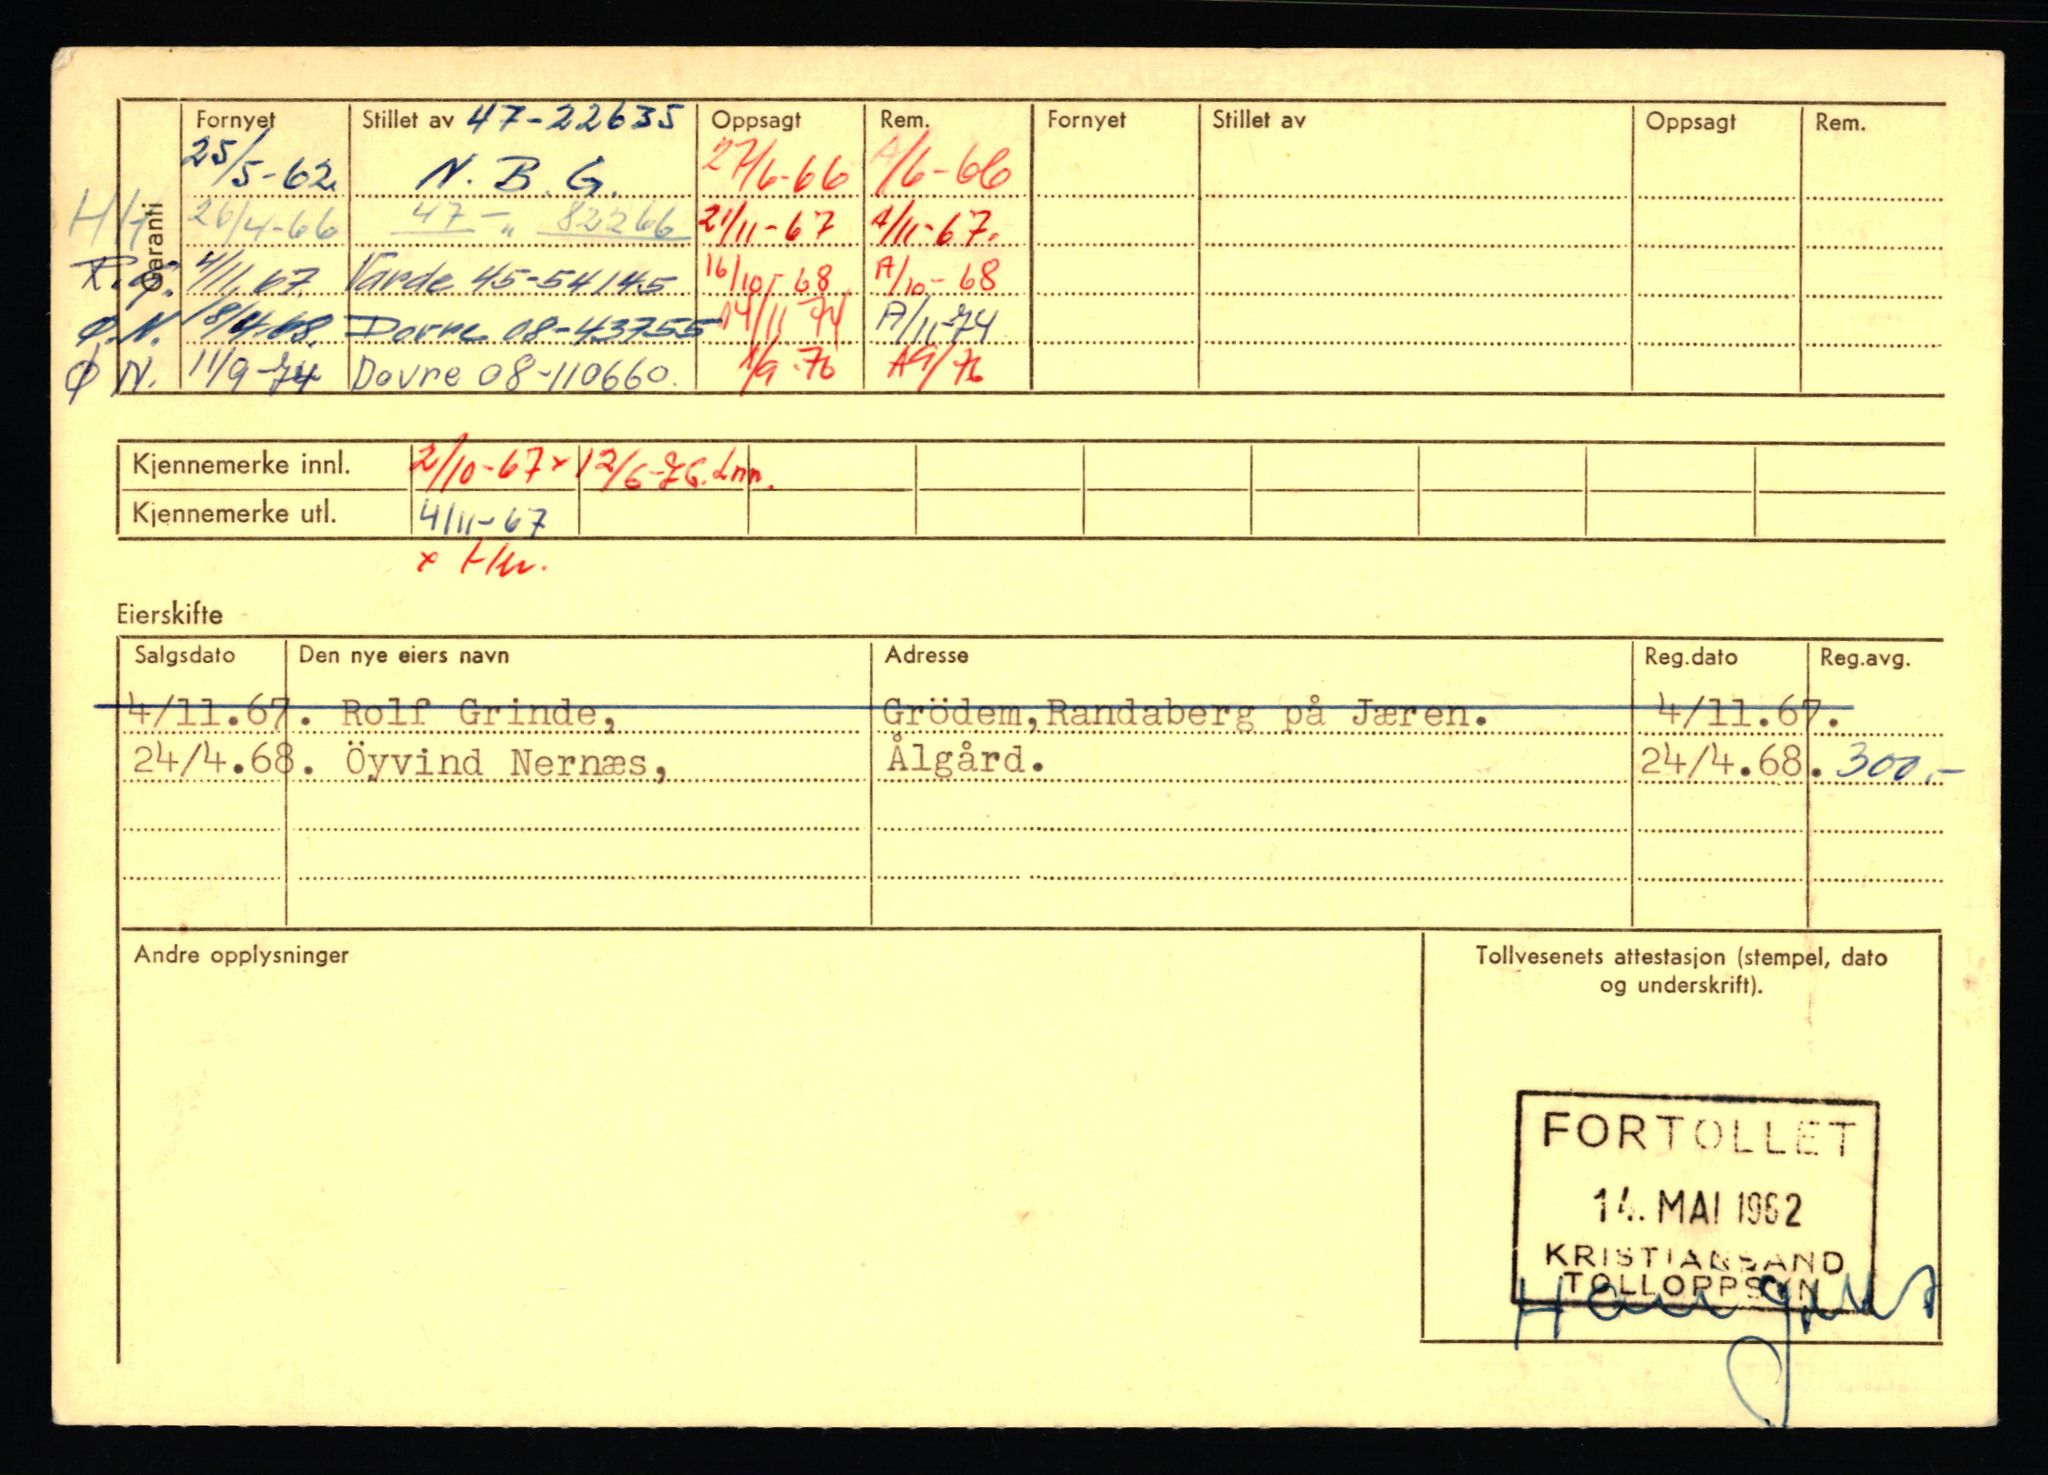 Garanti Fornyet Stillet av 47-22635 Oppsagt Rem. Fornyet Stillet av Oppsagt Rem.
25/5-62. N. B. G. 27/6-66 A/6-66
26/4-66 47 - „ 82266 21/11-67 A/11-67.
R.G. 4/11.67. Varde 45-54145 16/10-68 A/10-68
Ø.N. Dovre 08-43755 14/11 74 A/11-74
Ø N. 11/9-74 Dovre 08-110660. 1/9-76 A9/76
Kjennemerke innl. 2/10-67 x 12/6-76. Inn.
Kjennemerke utl. 4/11-67
x
Eierskifte
Salgsdato Den nye eiers navn Adresse Reg.dato Reg.avg.
4/11.67. Rolf Grinde, Grödem,Randaberg på Jæren. 4/11.67.
24/4.68. Öyvind Nernæs, Ålgård. 24/4.68. 300.-
Andre opplysninger
Tollvesenets attestasjon (stempel, dato
og underskrift).
FORTOLLET
14. MAI 1962
KRISTIANSAND
TOLLOPPSYN